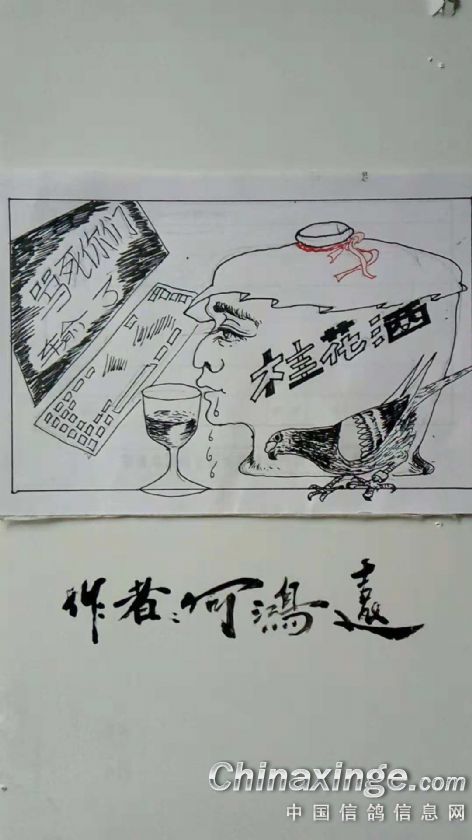 骂死你们
桂花酒
作者:何鸿
Chinaxinge.com
中国信鸽信息网